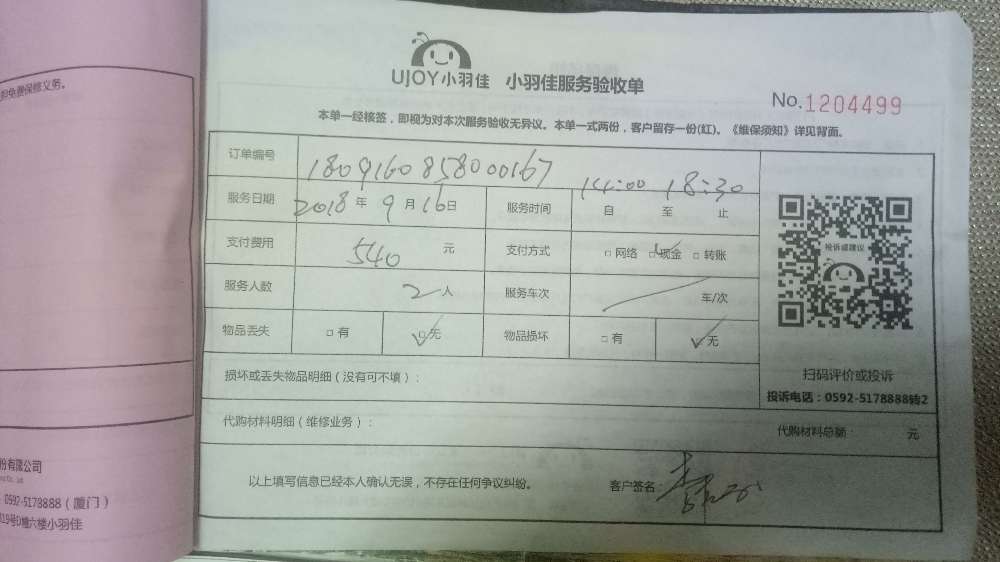 的免费保修义务。
UJOY小羽佳 小羽佳服务验收单
No.1204499
本单一经核签，即视为对本次服务验收无异议。本单一式两份，客户留存一份(红)。《维保须知》详见背面。
订单编号 1809160858000167
服务日期 2018年9月16日 服务时间 14:00 18:30 自 至 止
支付费用 540 元 支付方式 □网络 □现金 □转账
服务人数 2人 服务车次 车/次
物品丢失 □有 □无 物品损坏 □有 无
投诉或建议
扫码评价或投诉
投诉电话：0592-5178888转2
损坏或丢失物品明细（没有可不填）：
代购材料明细（维修业务）： 代购材料总额： 元
以上填写信息已经本人确认无误，不存在任何争议纠纷。 客户签名：
份有限公司
0592-5178888（厦门）
19号D幢六楼小羽佳